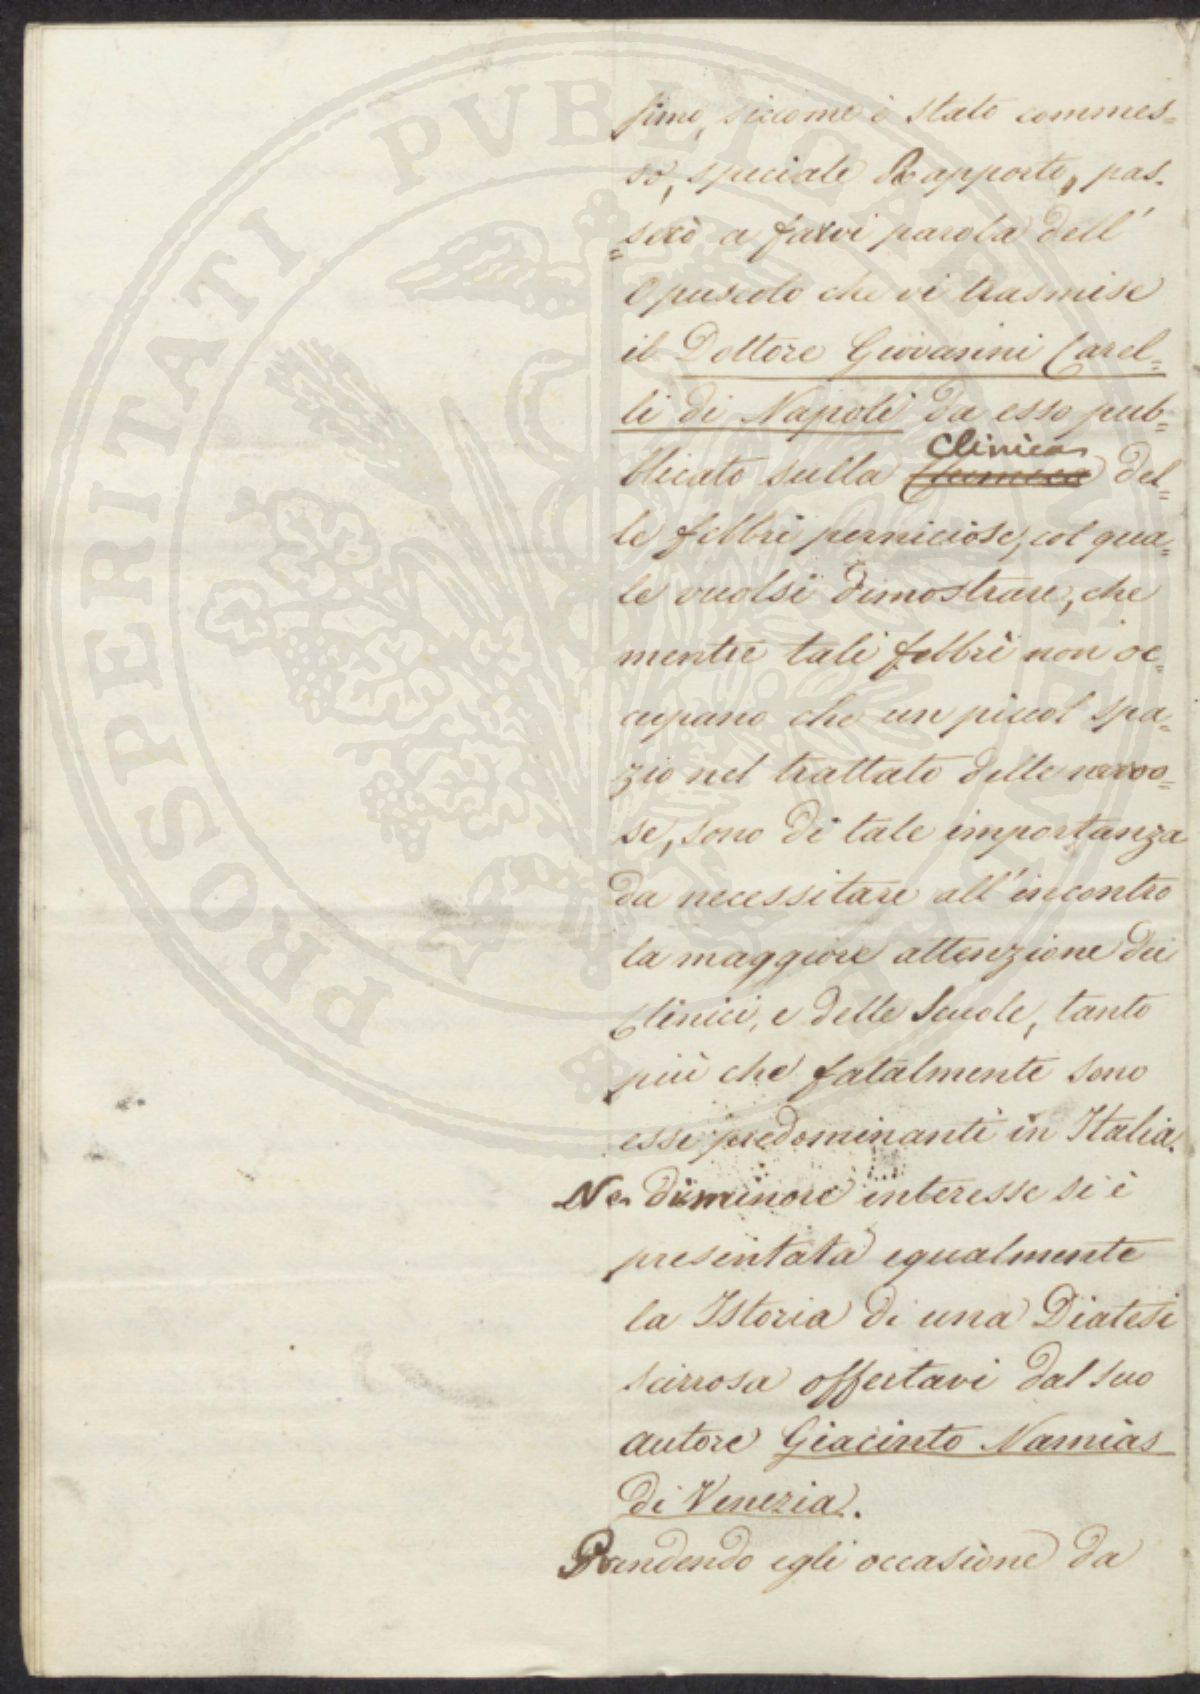 simo, siccome è stato commes=
so, speciale Rapporto, pas=
=serò a farvi parola dell'
Opuscolo che vi trasmise
il Dottore Giovanni Carel=
li di Napoli da esso pub=
blicato sulla Clinica del=
le febbri perniciose, col qua=
le vuolsi dimostrare, che
mentre tali febbri non oc=
cupano che un piccol spa=
zio nel trattato delle nervo=
se, sono di tale importanza
da necessitare all'incontro
la maggiore attenzione dei
Clinici, e delle Scuole, tanto
più che fatalmente sono
esse predominanti in Italia.
Ne di minore interesse si è
presentata egualmente
la Istoria di una Diatesi
scirrosa offertavi dal suo
autore Giacinto Namias
di Venezia.
Prendendo egli occasione da
PROSPERITATI PVBLICAE